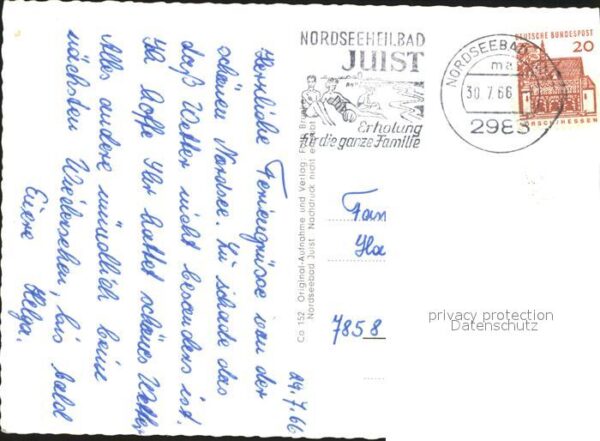 29.7.66
Herrliche Feriengrüsse von der
schönen Nordsee. Zu schade das
daß Wetter nicht besonders ist.
Ich hoffe Ihr hattet schönes Wetter
Alles andere mündlich beim
nächsten Wiedersehen, bis bald
Eiere Helga.
Co 152 Original-Aufnahme und Verlag
Nordseebad Juist Nachdruck nicht
NORDSEEHEILBAD
JUIST
Erholung
für die ganze Familie
NORDSEEBAD
30.7.66
2983
DEUTSCHE BUNDESPOST
20
LORSCH/HESSEN
Fam
7858
privacy protection
Datenschutz